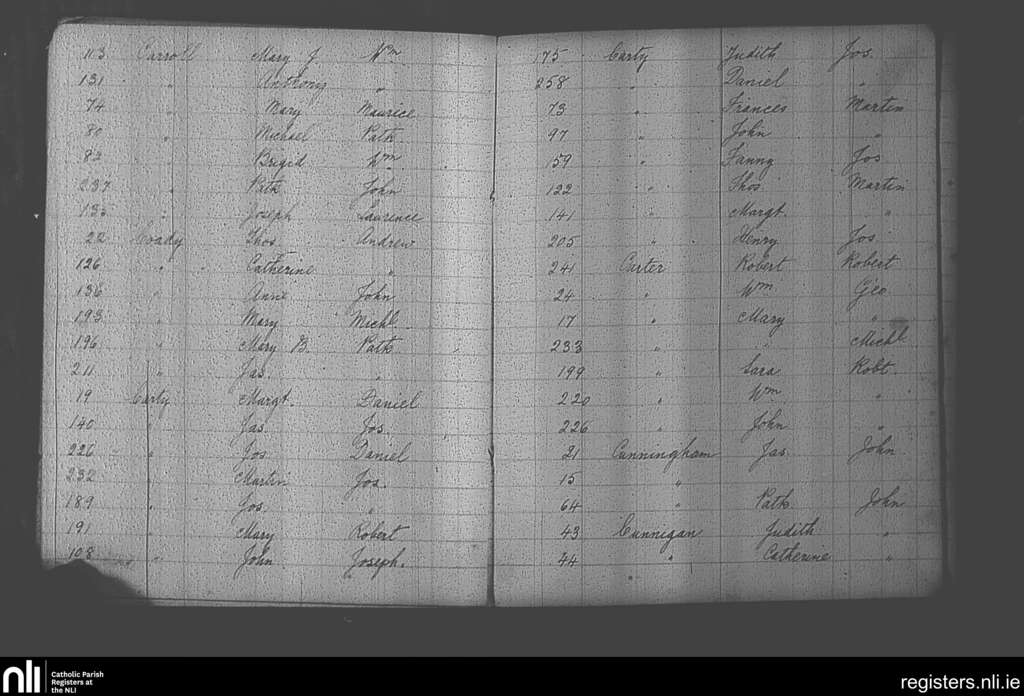 113 Carroll Mary J Wm
131 " Anthony "
74 " Mary Maurice
80 " Michael Patk
82 " Brigid Wm
237 " Patk John
135 " Joseph Laurence
22 Coady Thos. Andrew
126 " Catherine "
136 " Anne John
193 " Mary Michl.
196 " Mary B. Patk
211 " Jas. "
19 Carty Margt. Daniel
140 " Jas. Jos.
226 " Jos. Daniel
232 " Martin Jos.
189 " Jos. "
191 " Mary Robert
108 " John Joseph.
175 Carty Judith Jos.
258 " Daniel "
73 " Frances Martin
97 " John "
159 " Fanny Jos
122 " Thos Martin
141 " Margt. "
205 " Henry Jos
241 Carter Robert Robert
24 " Wm Geo
17 " Mary "
233 " " Michl
199 " Sara Robt.
220 " Wm "
226 " John "
21 Cunningham Jas. John
15 "
64 " Patk John
43 Cunnigan Judith "
44 " Catherine "
nli Catholic Parish
Registers at
the NLI
registers.nli.ie